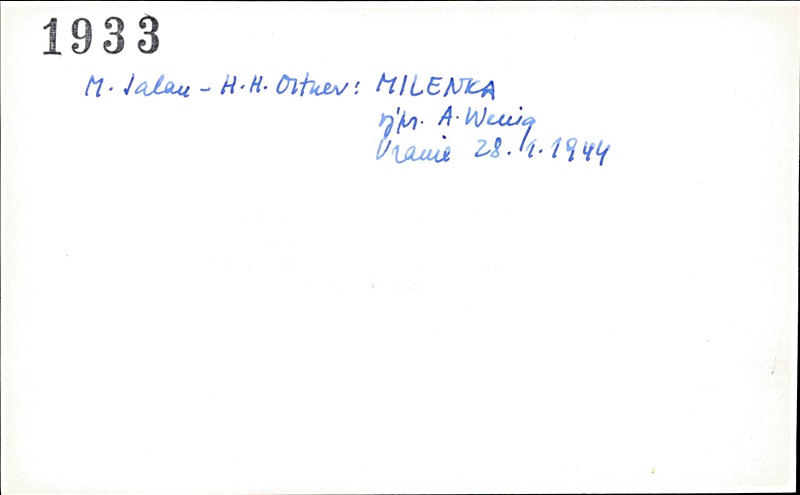 1933
M. Jalan - H.H. Ortner: MILENKA
výpr. A. Wenig
Uranie 28.1.1944